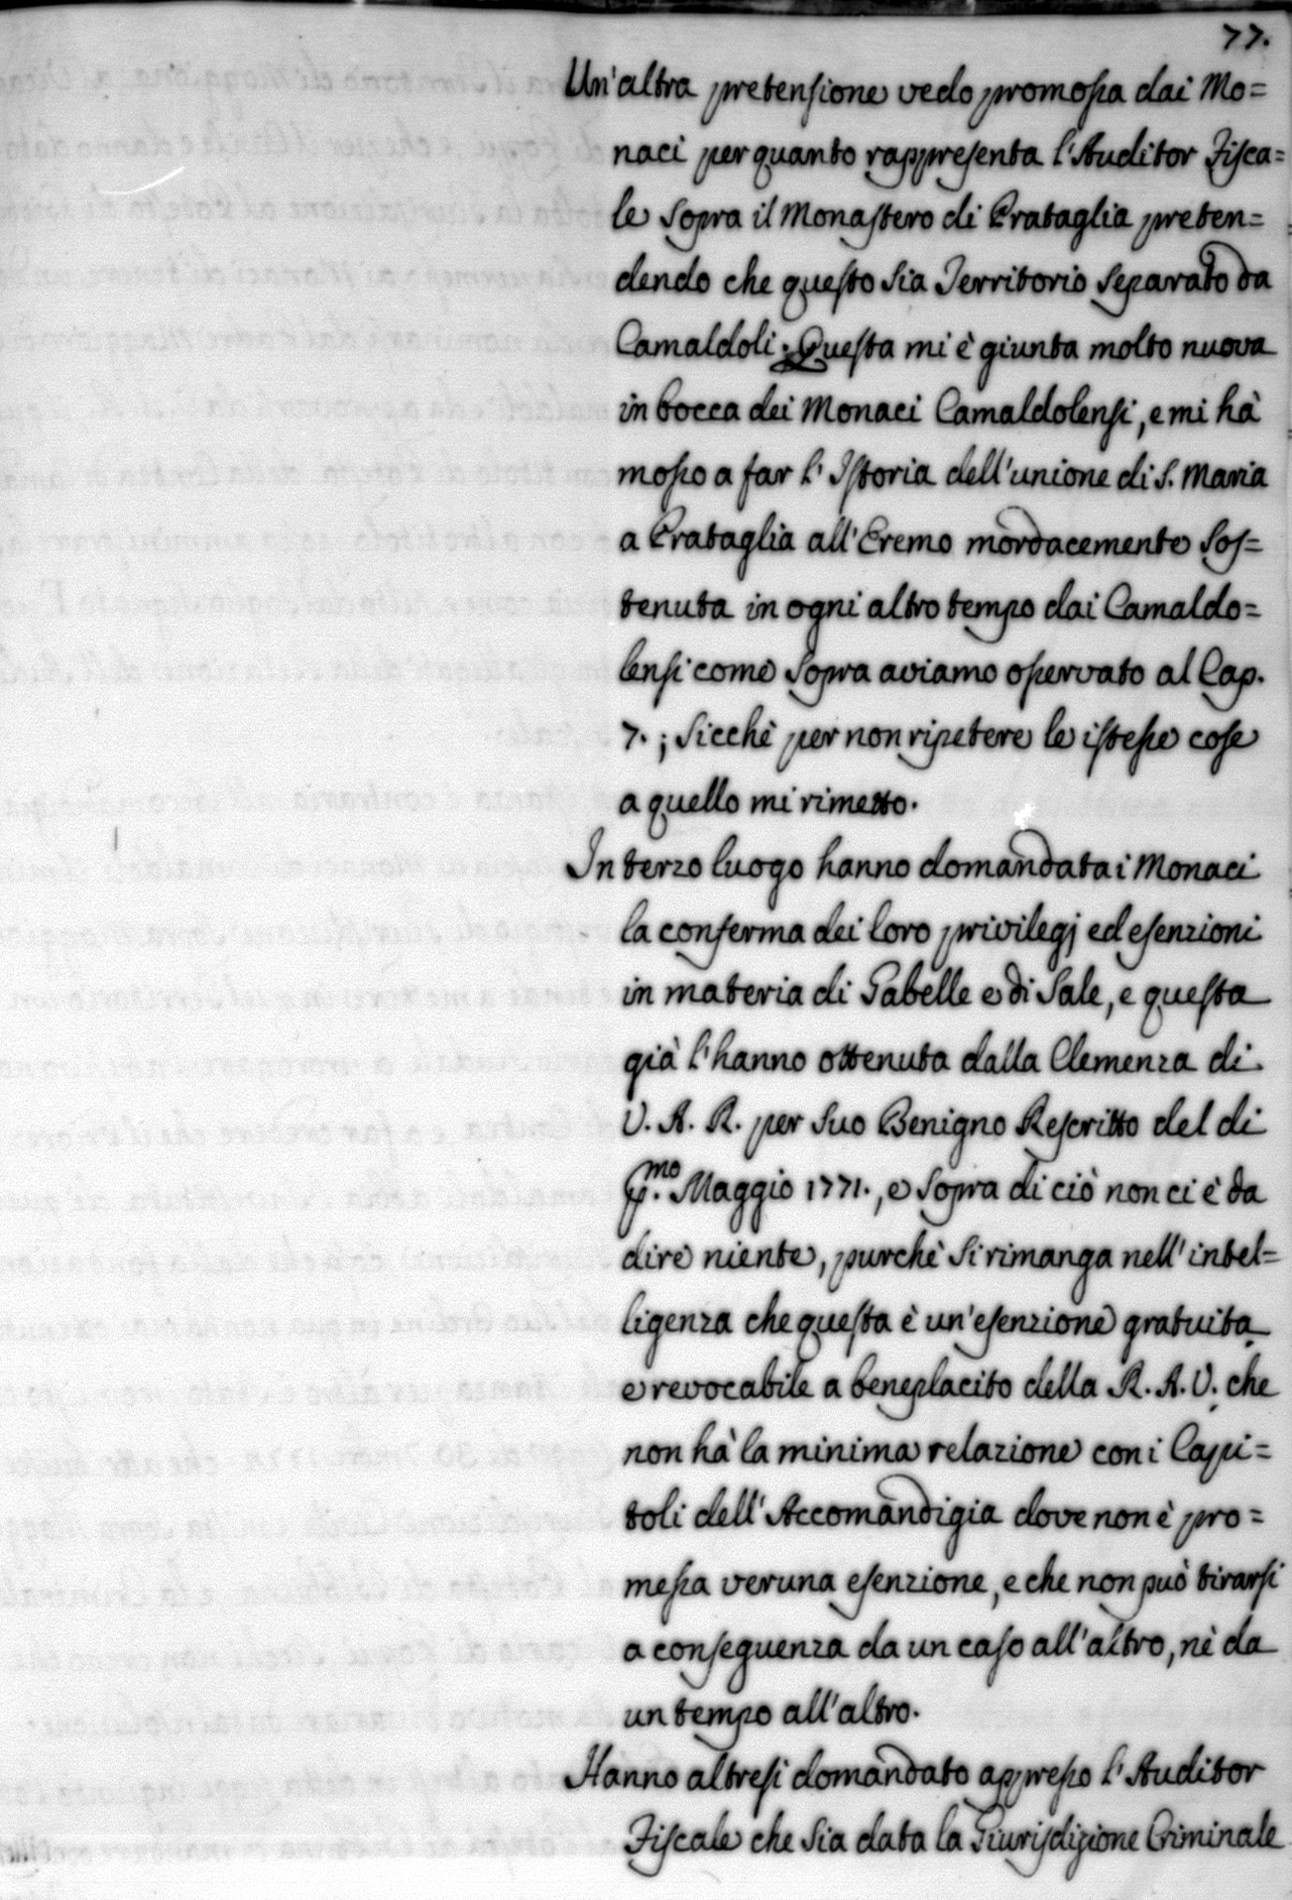 77.
Un'altra pretensione vedo promossa dai Mo=
naci per quanto rappresenta l'Auditor Fisca=
le sopra il Monastero di Prataglia preten=
dendo che questo sia Territorio separato da
Camaldoli; Questa mi è giunta molto nuova
in bocca dei Monaci Camaldolensi, e mi hà
mosso a far l'Istoria dell'unione di S. Maria
a Prataglia all'Eremo mordacemente sos=
tenuta in ogni altro tempo dai Camaldo=
lensi come sopra aviamo osservato al Cap.
7. ; sicchè per non ripetere le istesse cose
a quello mi rimetto.
In terzo luogo hanno domandata i Monaci
la conferma dei loro privilegj ed esenzioni
in materia di Gabelle e di Sale, e questa
già l'hanno ottenuta dalla Clemenza di
V. A. R. per suo Benigno Rescritto del di
p.mo Maggio 1771., e sopra di ciò non ci è da
dire niente, purchè si rimanga nell'intel=
ligenza che questa è un'esenzione gratuita
e revocabile a beneplacito della R. A. V. che
non hà la minima relazione con i Capi=
toli dell'Accomandigia dove non è pro=
messa veruna esenzione, e che non può tirarsi
a conseguenza da un caso all'altro, nè da
un tempo all'altro.
Hanno altresi domandato appresso l'Auditor
Fiscale che sia data la Giurisdizione Criminale